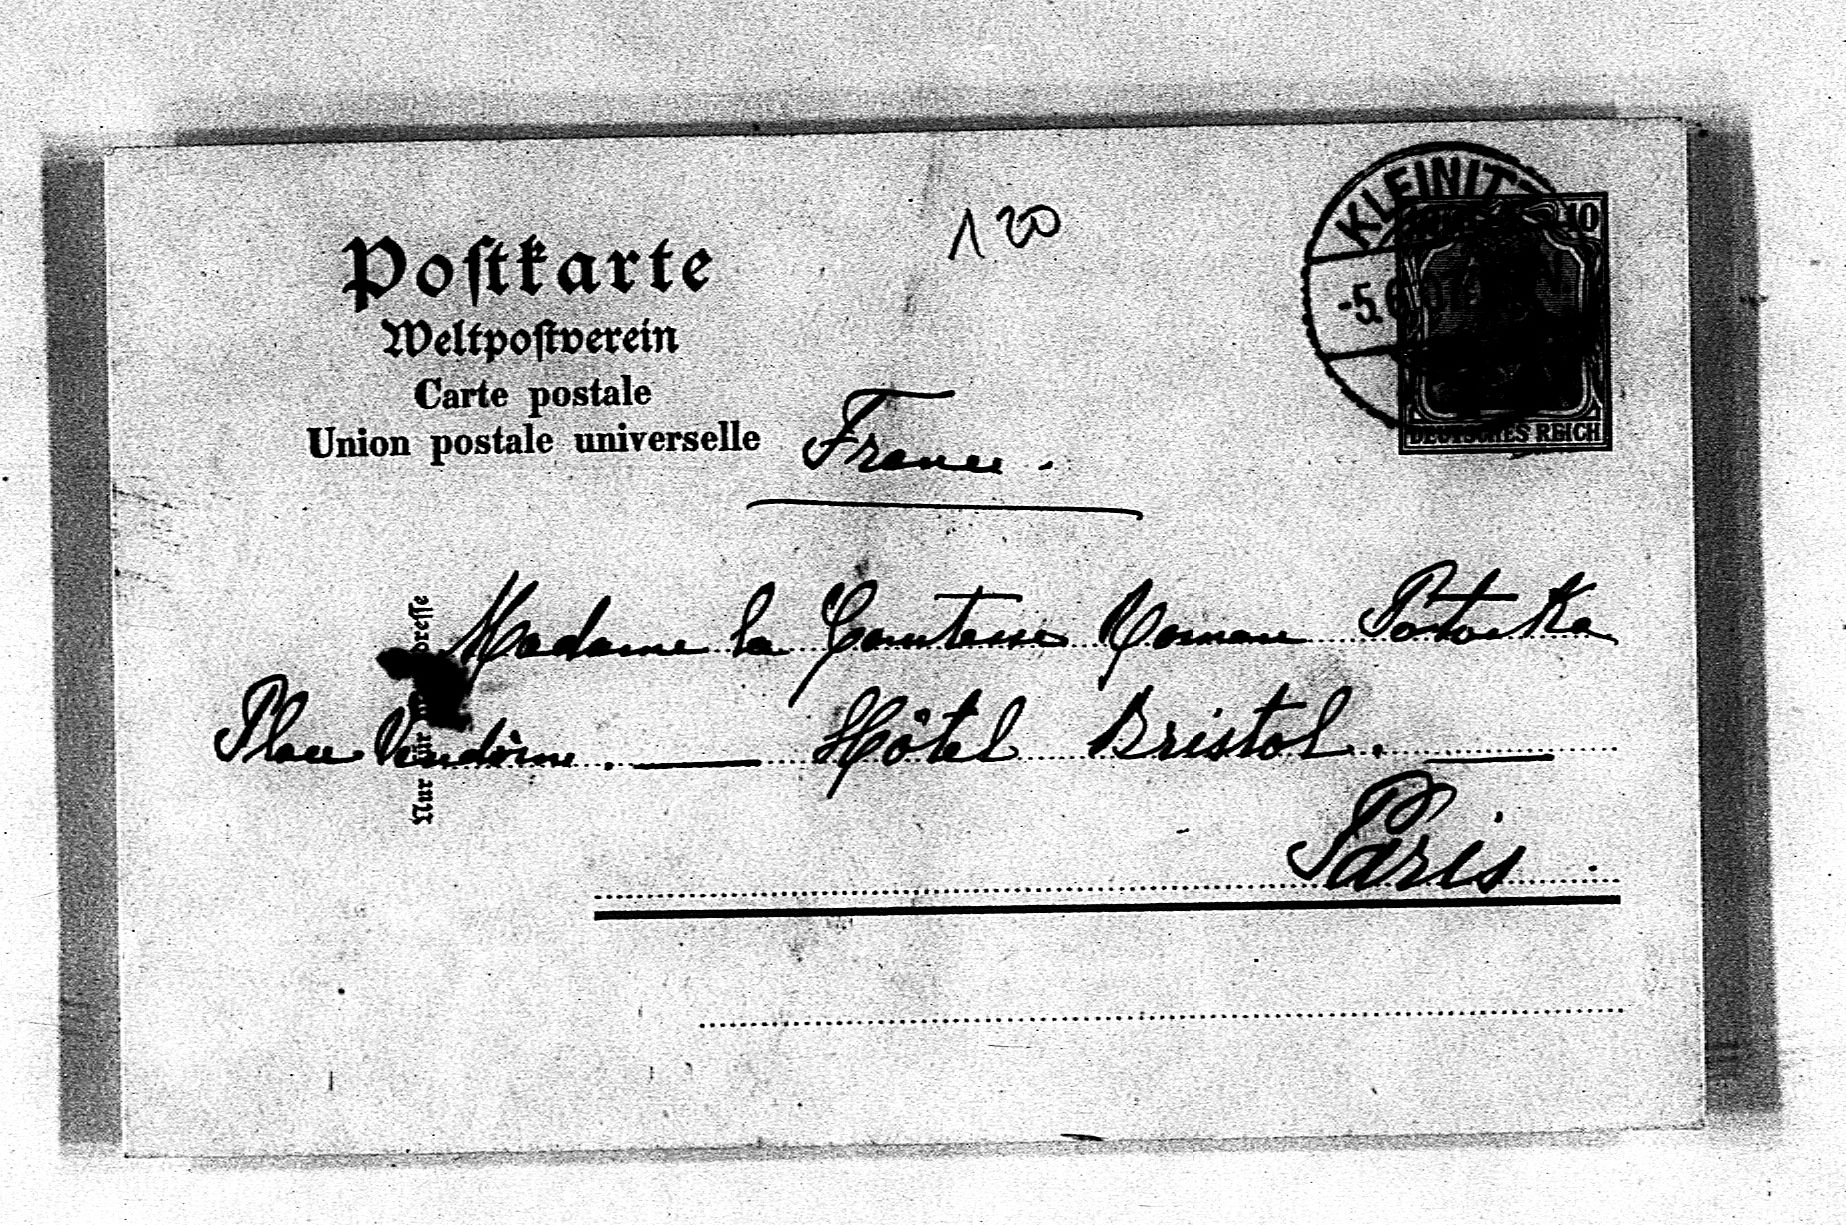 Postkarte
Weltpostverein
Carte postale
Union postale universelle
120
KLEINITZ
-5.6
10
DEUTSCHES REICH
France.
Madame la Comtesse Roman Potocka
Place Vendôme. — Hôtel Bristol. —
Paris.
Nur für